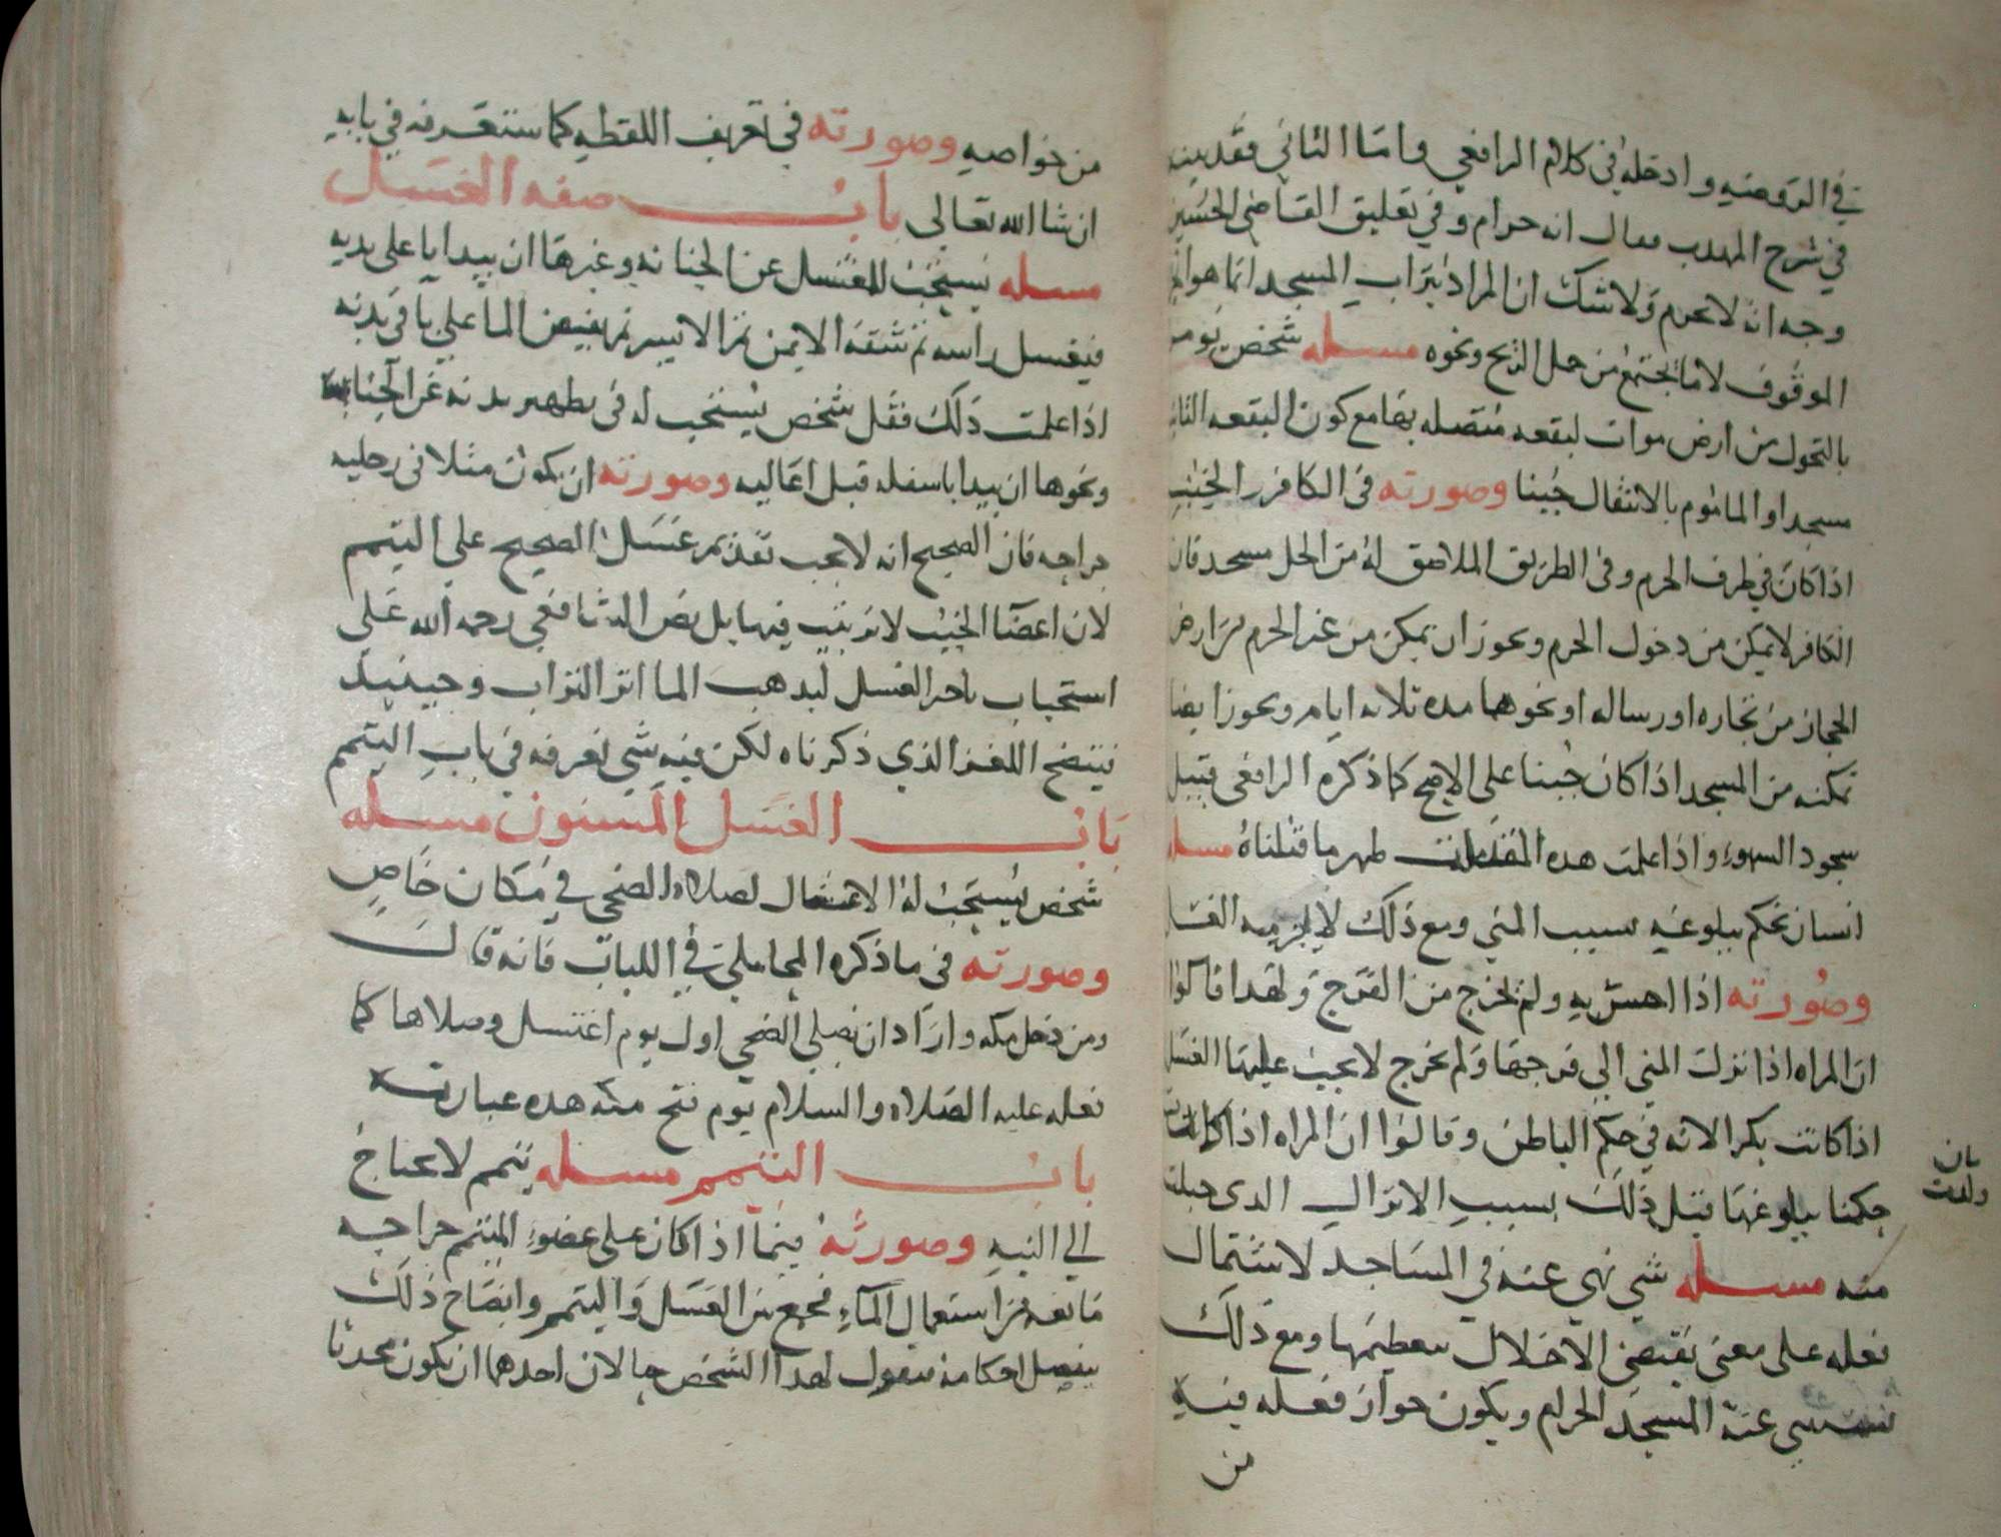 في الروضه وادخله في كلام الرافعي واما الثاني فقد بينه
في شرح المهدب فقال انه حرام وفي تعليق القاضي الحسين
وجه انه لا يحرم ولا شك ان المراد بتراب المسجد انما هو
الموقوف لا ما يجتمع من حمل الريح ونحوه مسئله شخص يومر
بالتحول من ارض موات لبقعه متصله بها مع كون البقعه
مسجدا والماموم بالانتقال جنبا وصورته في الكافر الجنب
اذا كان في طرف الحرم وفي الطريق الملاصق له من الحل مسجد فان
الكافر لا يمكن من دخول الحرم ويجوز ان يمكن من غير الحرم من ارض
الحجاز من تجاره او رساله او نحوهما مده ثلاثه ايام ويجوز ايضا
تمكنه من المسجد اذا كان جنبا على الاصح كما ذكره الرافعي قبيل
سجود السهو واذا علمت هذه المقدمات ظهر ما قلناه مسئله
انسان نحكم ببلوغه بسبب المني ومع ذلك لا يلزمه الغسل
وصورته اذا احس به ولم يخرج من الفرج ولهذا قالوا
ان المراه اذا نزل المني الي فرجها ولم يخرج لا يجب عليها الغسل
اذا كانت بكرا لانه في حكم الباطن وقالوا ان المراه اذا
بان
ولدت
حكمنا ببلوغها قبل ذلك بسبب الانزال الدى حبلت
منه مسئله شي نهي عنه في المساجد لاشتمال
فعله على معنى يقتضي الاخلال بتعظيمها ومع ذلك
يستثنى عنه المسجد الحرام ويكون جواز فعله فيه
من
من خواصه وصورته في تعريف اللقطه كما ستعرفه في بابه
ان شا الله تعالى باب صفه الغسل
مسئله يستحب للمغتسل عن الجنابه وغيرها ان يبدا باعلى بدنه
فيغسل راسه ثم شقه الايمن ثم الايسر ثم يفيض الما علي باقي بدنه
اذا علمت ذلك فقل شخص يستحب له في تطهير بدنه عن الجنابه
ونحوها ان يبدا باسفله قبل اعاليه وصورته ان يكون مثلا في رجليه
جراحه فان الصحيح انه لا يجب تقديم غسل الصحيح علي التيمم
لان اعضا الجنب لا ترتيب فيها بل نص الشافعي رحمه الله على
استحباب تاخير الغسل ليذهب الما اثر التراب وحينيذ
فيتضح اللغز الذي ذكرناه لكن فيه شي نعرفه في باب التيمم
باب الغسل المسنون مسئله
شخص يستحب له الاغتسال لصلاه الضحي في مكان خاص
وصورته في ما ذكره المحاملي في اللباب فانه قال
ومن دخل مكه واراد ان يصلي الضحي اول يوم اغتسل وصلاها كما
فعله عليه الصلاه والسلام يوم فتح مكه هده عبارته
باب التيمم مسئله تيمم لا يحتاج
الي النيه وصورته فيما اذا كان على عضو المتيمم جراحه
مانعه من استعمال الماء فجمع بين الغسل والتيمم وايضاح ذلك
بتفصيل احكامه فنقول لهدا الشخص حالان احدهما ان يكون محدثا